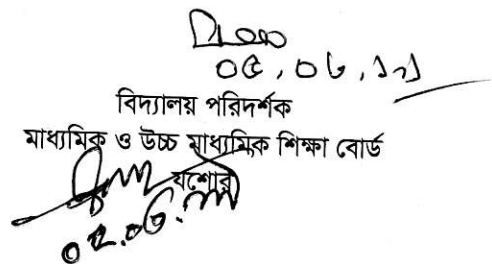 ০৫.০৬.১৭
বিদ্যালয় পরিদর্শক
মাধ্যমিক ও উচ্চ মাধ্যমিক শিক্ষা বোর্ড
যশোর